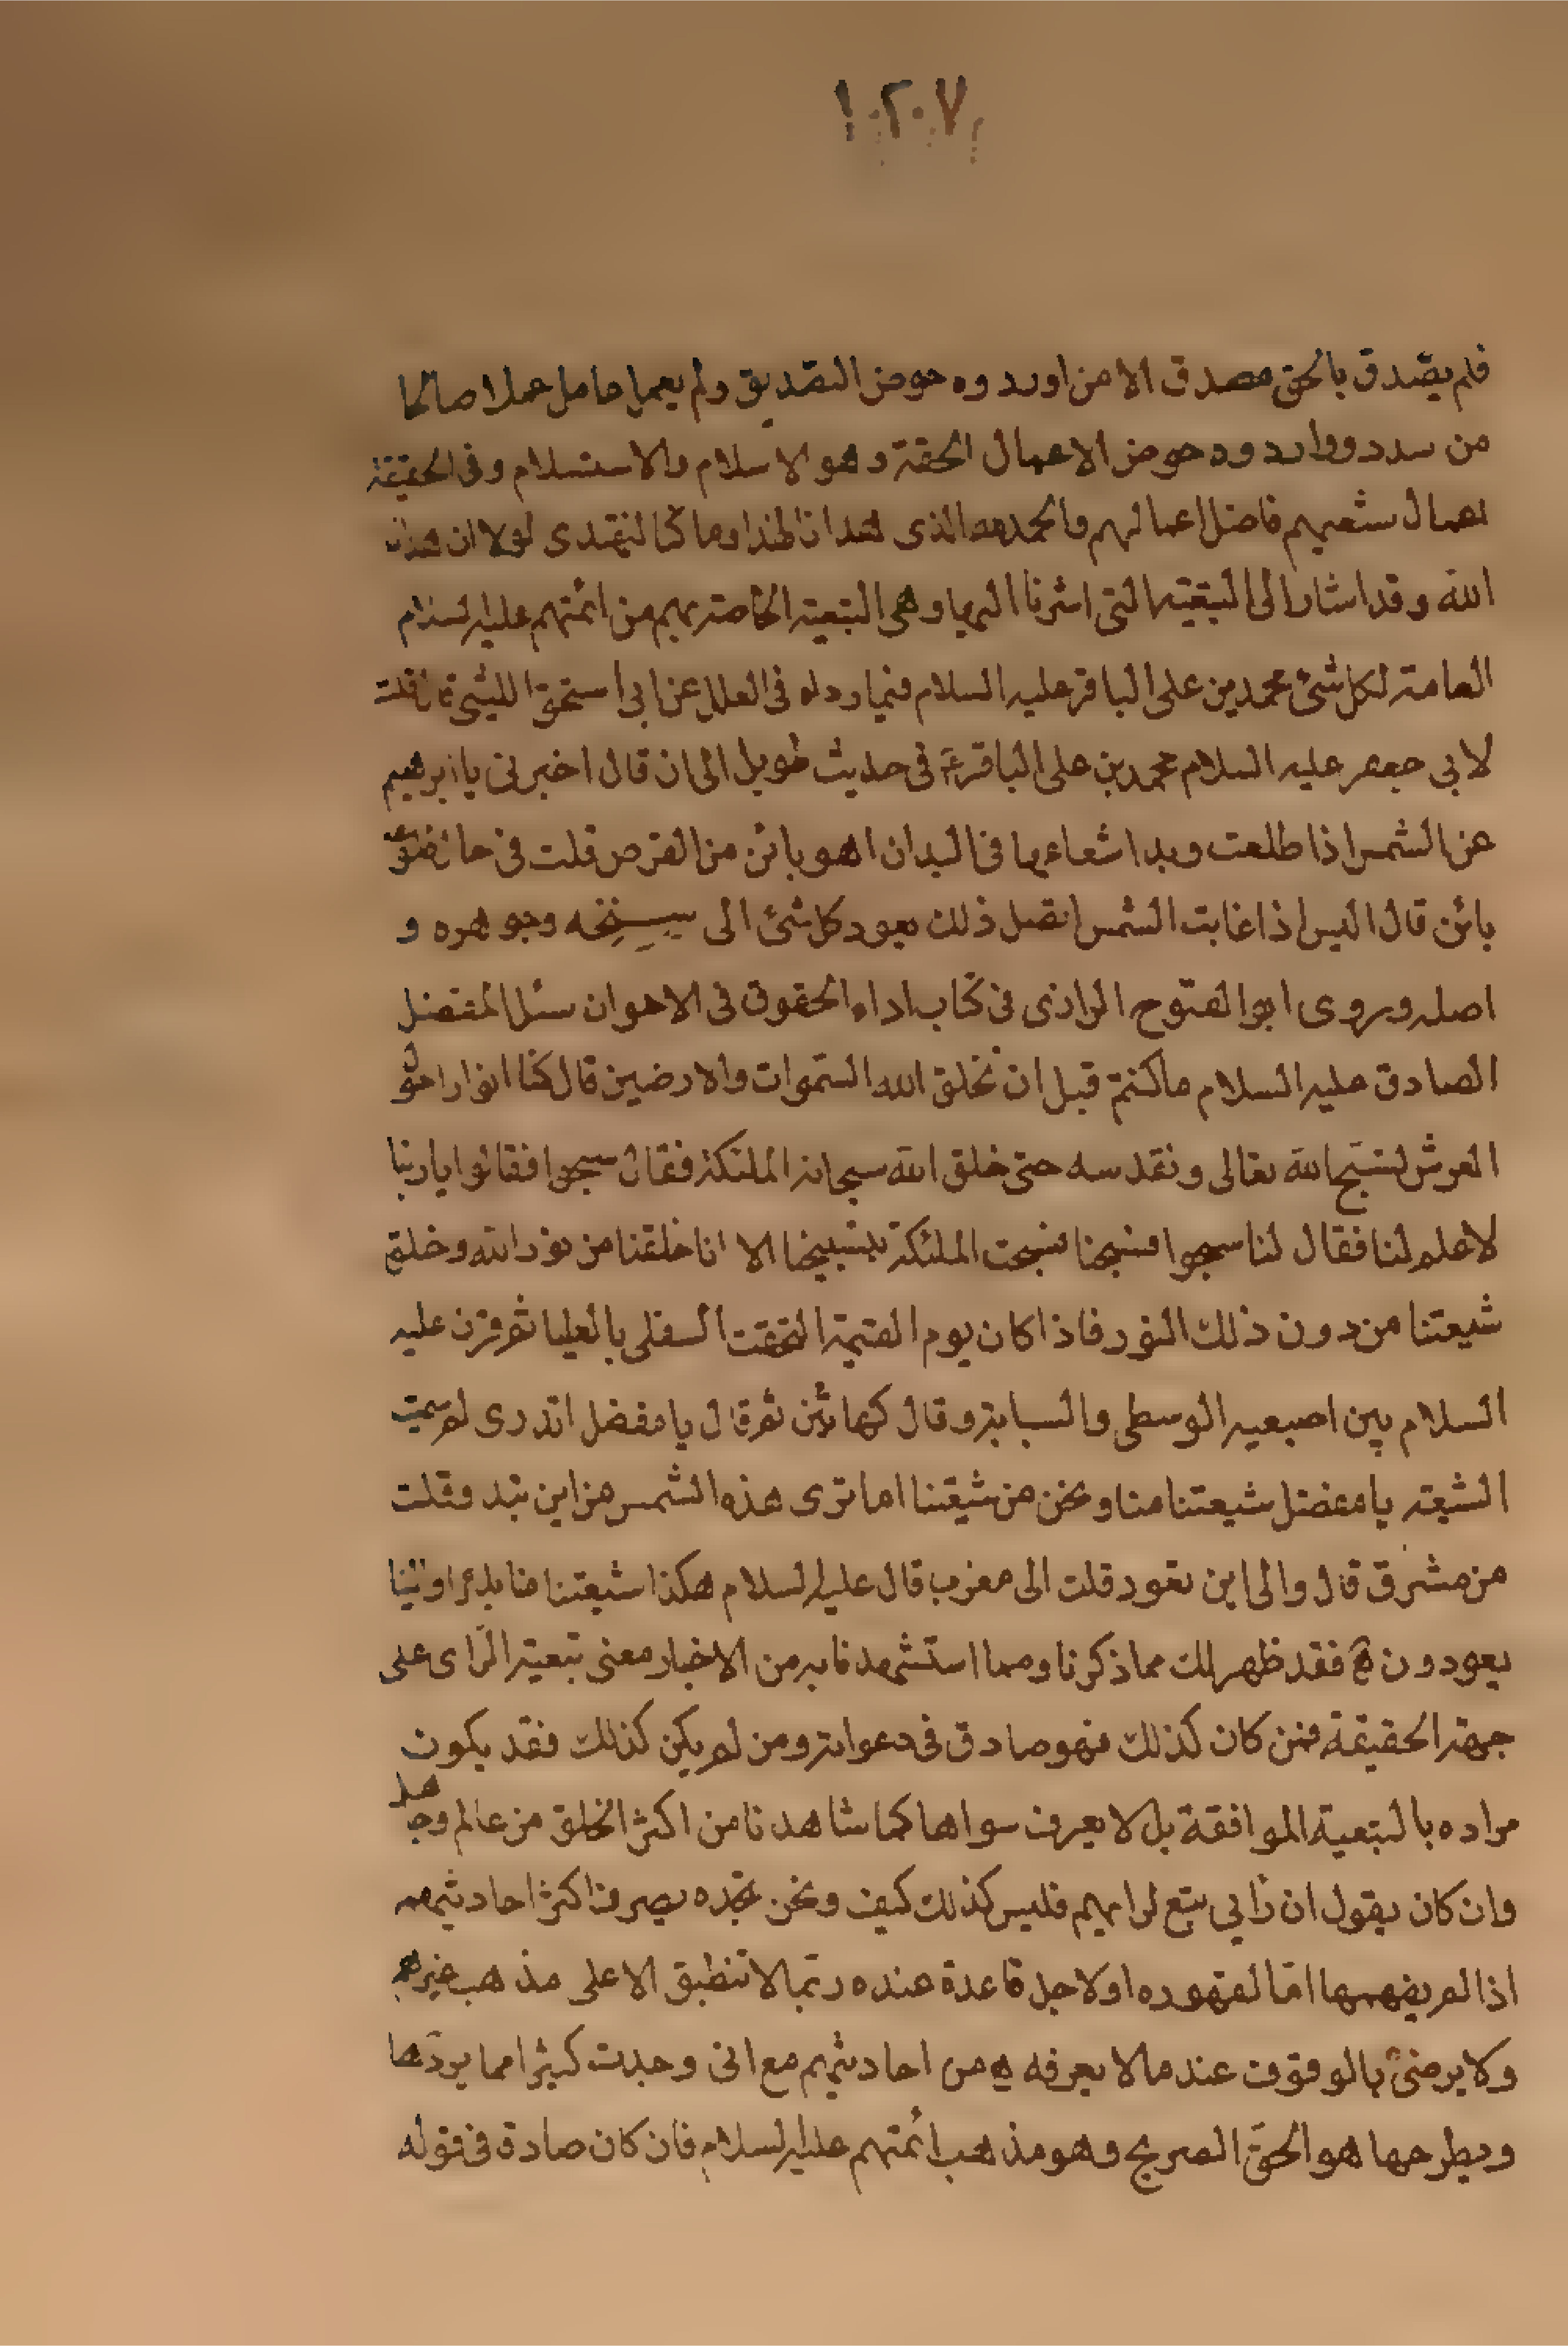 ١٠٢٠٧
فلم يصدق بالحق مصدق الا من اوردوه حوض التصديق ولم يعمل عامل عملا صالحا
من سدد وواردوه حوض الاعمال الحقة وهو الاسلام والاستسلام وفى الحقيقة
اعمال شيعتهم فاضل اعمالهم فالحمد لله الذى هدانا لهذا وما كنا لنهتدى لولا ان هدانا
الله وقد اشار الى التبعية التى اشرنا اليها وهى التبعية الخاصة بهم من ائمتهم عليه السلام
العامة لكل شئ محمد بن على الباقر عليه السلام فيما رواه فى العلل عن ابى اسحق الليثى قال قلت
لابى جعفر عليه السلام محمد بن على الباقر ع فى حديث طويل الى ان قال اخبرنى يا ابرهيم
عن الشمس اذا طلعت وبدا شعاعها فى البلدان اهو بائن من القرص قلت فى حال طلوعه
بائن قال اليس اذا غابت الشمس اتصل ذلك يعود كل شئ الى سنخه وجوهره و
اصله وروى ابو الفتوح الرازى فى كتاب اداء الحقوق فى الاخوان سئل المفضل
الصادق عليه السلام ما كنتم قبل ان يخلق الله السموات والارضين قال كنا انوارا حول
العرش نسبح الله تعالى ونقدسه حتى خلق الله سبحانه الملئكة فقال سبحوا فقالوا يا ربنا
لا علم لنا فقال لنا سبحوا فسبحنا فسبحت الملئكة بتسبيحنا الا انا خلقنا من نور الله وخلق
شيعتنا من دون ذلك النور فاذا كان يوم القيمة التحقت السفلى بالعليا ثم قرن عليه
السلام بين اصبعيه الوسطى والسبابة وقال كهاتين ثم قال يا مفضل اتدرى لم سميت
الشيعة يا مفضل شيعتنا منا ونحن من شيعتنا اما ترى هذه الشمس من اين تبد وقلت
من مشرق قال والى اين تعود قلت الى مغرب قال عليه السلام هكذا شيعتنا منا بدئوا والينا
يعودون فقد ظهر لك مما ذكرنا ومما استشهدنا به من الاخبار معنى تبعية الرأى على
جهة الحقيقة فمن كان كذلك فهو صادق فى دعواه ومن لم يكن كذلك فقد يكون
مراده بالتبعية الموافقة بل لا يعرف سواها كما شاهدنا من اكثر الخلق من عالم وجاهل
وان كان يقول ان رأيى يتبع لرأيهم فليس كذلك كيف ونحن نجده يصرف اكثر احاديثهم
اذا لم يفهمها اما لقصوره او لاجل قاعدة عنده ربما لا تنطبق الا على مذهب غيرهم
ولا يرضى بالوقوف عند ما لا يعرفه من احاديثهم مع انى وجدت كثيرا مما يردها
ويطرحها هو الحق الصريح وهو مذهب ائمتهم عليه السلام فان كان صادق فى قوله